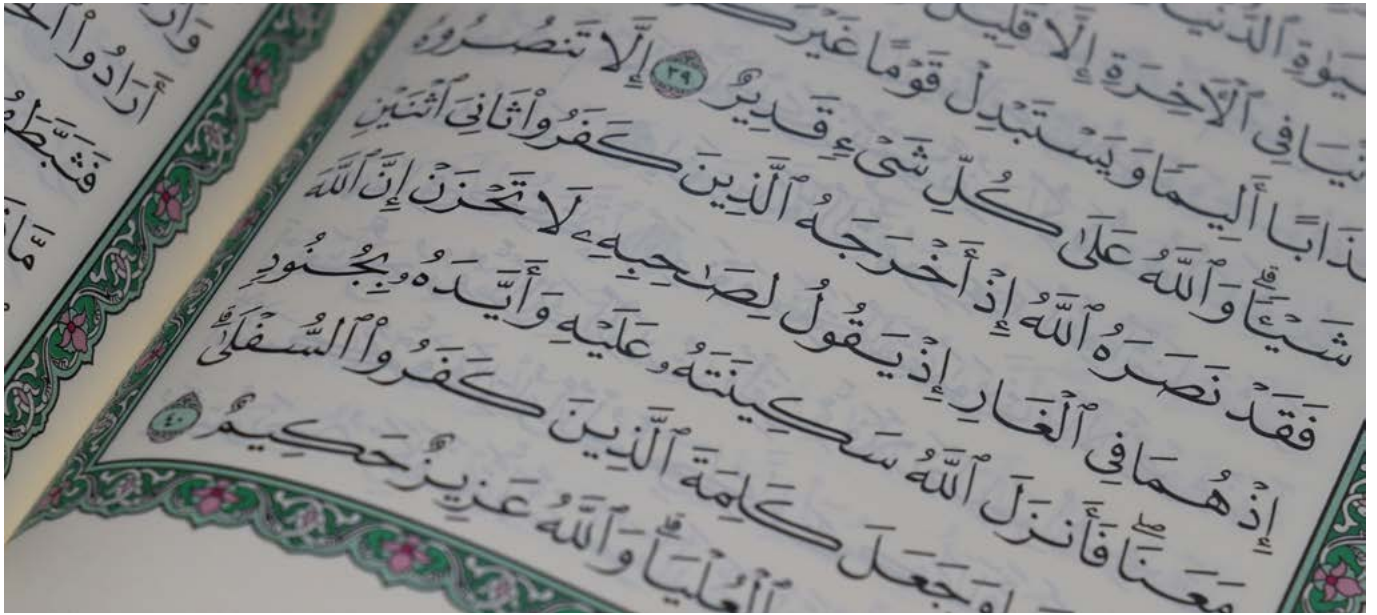 ٱلدُّنْيَا
فِى ٱلْـَٔاخِرَةِ إِلَّا قَلِيل
عَذَابًا أَلِيمًا وَيَسْتَبْدِلْ قَوْمًا غَيْرَك
شَيْـًٔاۗ وَٱللَّهُ عَلَىٰ كُلِّ شَىْءٍ قَدِيرٌ ٣٩ إِلَّا تَنصُرُوهُ
فَقَدْ نَصَرَهُ ٱللَّهُ إِذْ أَخْرَجَهُ ٱلَّذِينَ كَفَرُوا۟ ثَانِىَ ٱثْنَيْنِ
إِذْ هُمَا فِى ٱلْغَارِ إِذْ يَقُولُ لِصَـٰحِبِهِۦ لَا تَحْزَنْ إِنَّ ٱللَّهَ
مَعَنَاۖ فَأَنزَلَ ٱللَّهُ سَكِينَتَهُۥ عَلَيْهِ وَأَيَّدَهُۥ بِجُنُودٍ
وَجَعَلَ كَلِمَةَ ٱلَّذِينَ كَفَرُوا۟ ٱلسُّفْلَىٰۗ
ٱلْعُلْيَاۗ وَٱللَّهُ عَزِيزٌ حَكِيمٌ ٤٠
أَرَادُوا۟
فَثَبَّطَهُ